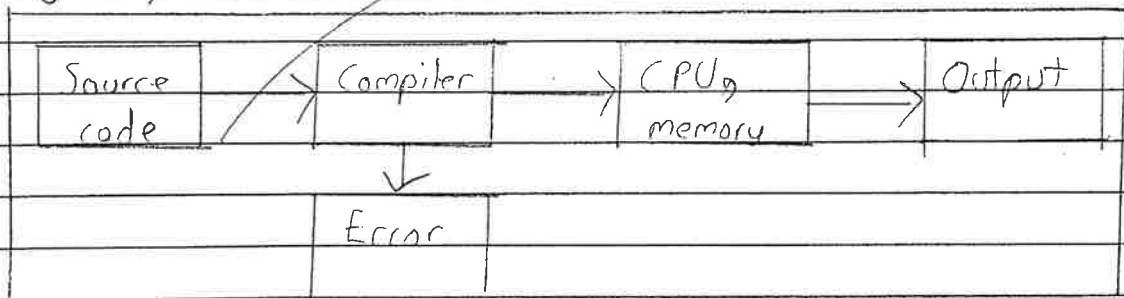 Source
code
Compiler
CPU,
memory
Output
Error